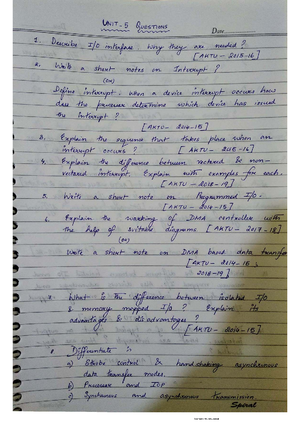 UNIT-5 QUESTIONS
Date
1. Describe I/O interface. Why they are needed?
[AKTU - 2015-16]
2. Write a short notes on Interrupt?
(or)
Define interrupt. when a device interrupt occurs how
does the processor determine which device has issued
the Interrupt?
[AKTU - 2014-15]
3. Explain the sequence that takes place when an
interrupt occurs? [AKTU - 2015-16]
4. Explain the difference between vectored & non-
vectored interrupt. Explain with examples for each.
[AKTU - 2018-19]
5. Write a short note on Programmed I/O.
[AKTU - 2014-15]
6. Explain the working of DMA controller with
the help of suitable diagrams [AKTU - 2017-18]
(or)
Write a short note on DMA based data transfer
[AKTU - 2014-15,
2018-19]
7. What is the difference between isolated I/O
& memory mapped I/O? Explain its
advantages & disadvantages?
[AKTU - 2014-15]
8. Differentiate :
a) Strobe control & handshaking asynchronous
data transfer modes.
b) Processor and IOP
c) Synchronous and asynchronous transmission.
Spiral